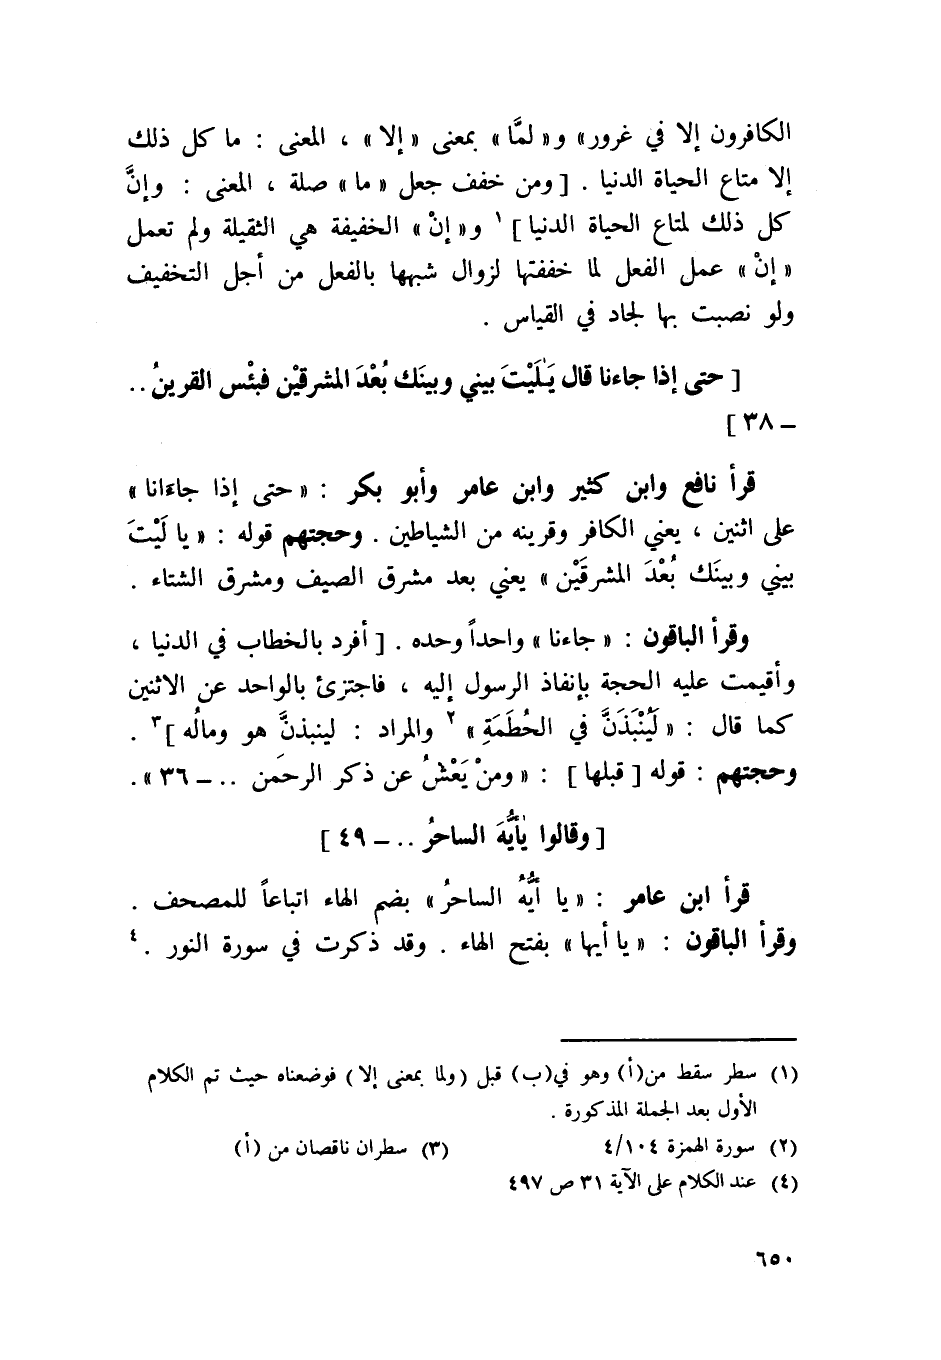 الكافرون إلا في غرور» و« لمَّا » بمعنى « إلا » ، المعنى : ما كل ذلك
إلا متاع الحياة الدنيا . [ ومن خفف جعل « ما » صلة ، المعنى : وإنَّ
كل ذلك لمتاع الحياة الدنيا ] ١ و« إنْ » الخفيفة هي الثقيلة ولم تعمل
« إنْ » عمل الفعل لما خففتها لزوال شبهها بالفعل من أجل التخفيف
ولو نصبت بها لجاد في القياس .
[ حتى إذا جاءنا قال يَـٰلَيْتَ بيني وبينَك بُعْدَ المشرقيْن فبئْس القرينُ ..
– ٣٨ ]
قرأ نافع وابن كثير وابن عامر وأبو بكر : « حتى إذا جاءانا »
على اثنين ، يعني الكافر وقرينه من الشياطين . وحجتهم قوله : « يا لَيْتَ
بيني وبينَك بُعْدَ المشرقَيْن » يعني بعد مشرق الصيف ومشرق الشتاء .
وقرأ الباقون : « جاءنا » واحداً وحده . [ أفرد بالخطاب في الدنيا ،
وأقيمت عليه الحجة بإنفاذ الرسول إليه ، فاجتزئ بالواحد عن الاثنين
كما قال : « لَيُنْبَذَنَّ في الحُطَمَةِ » ٢ والمراد : لينبذنَّ هو ومالُه ] ٣ .
وحجتهم : قوله [ قبلها ] : « ومنْ يَعْشُ عن ذكر الرحمَن .. – ٣٦ » .
[ وقالوا يَٰأيُّهَ الساحرُ .. – ٤٩ ]
قرأ ابن عامر : « يا أيُّهُ الساحرُ » بضم الهاء اتباعاً للمصحف .
وقرأ الباقون : « يا أيها » بفتح الهاء . وقد ذكرت في سورة النور . ٤
(١) سطر سقط من(أ) وهو في(ب) قبل (ولما بمعنى إلا) فوضعناه حيث تم الكلام
الأول بعد الجملة المذكورة .
(٢) سورة الهمزة ٤/١٠٤ (٣) سطران ناقصان من (أ)
(٤) عند الكلام على الآية ٣١ ص ٤٩٧
٦٥٠